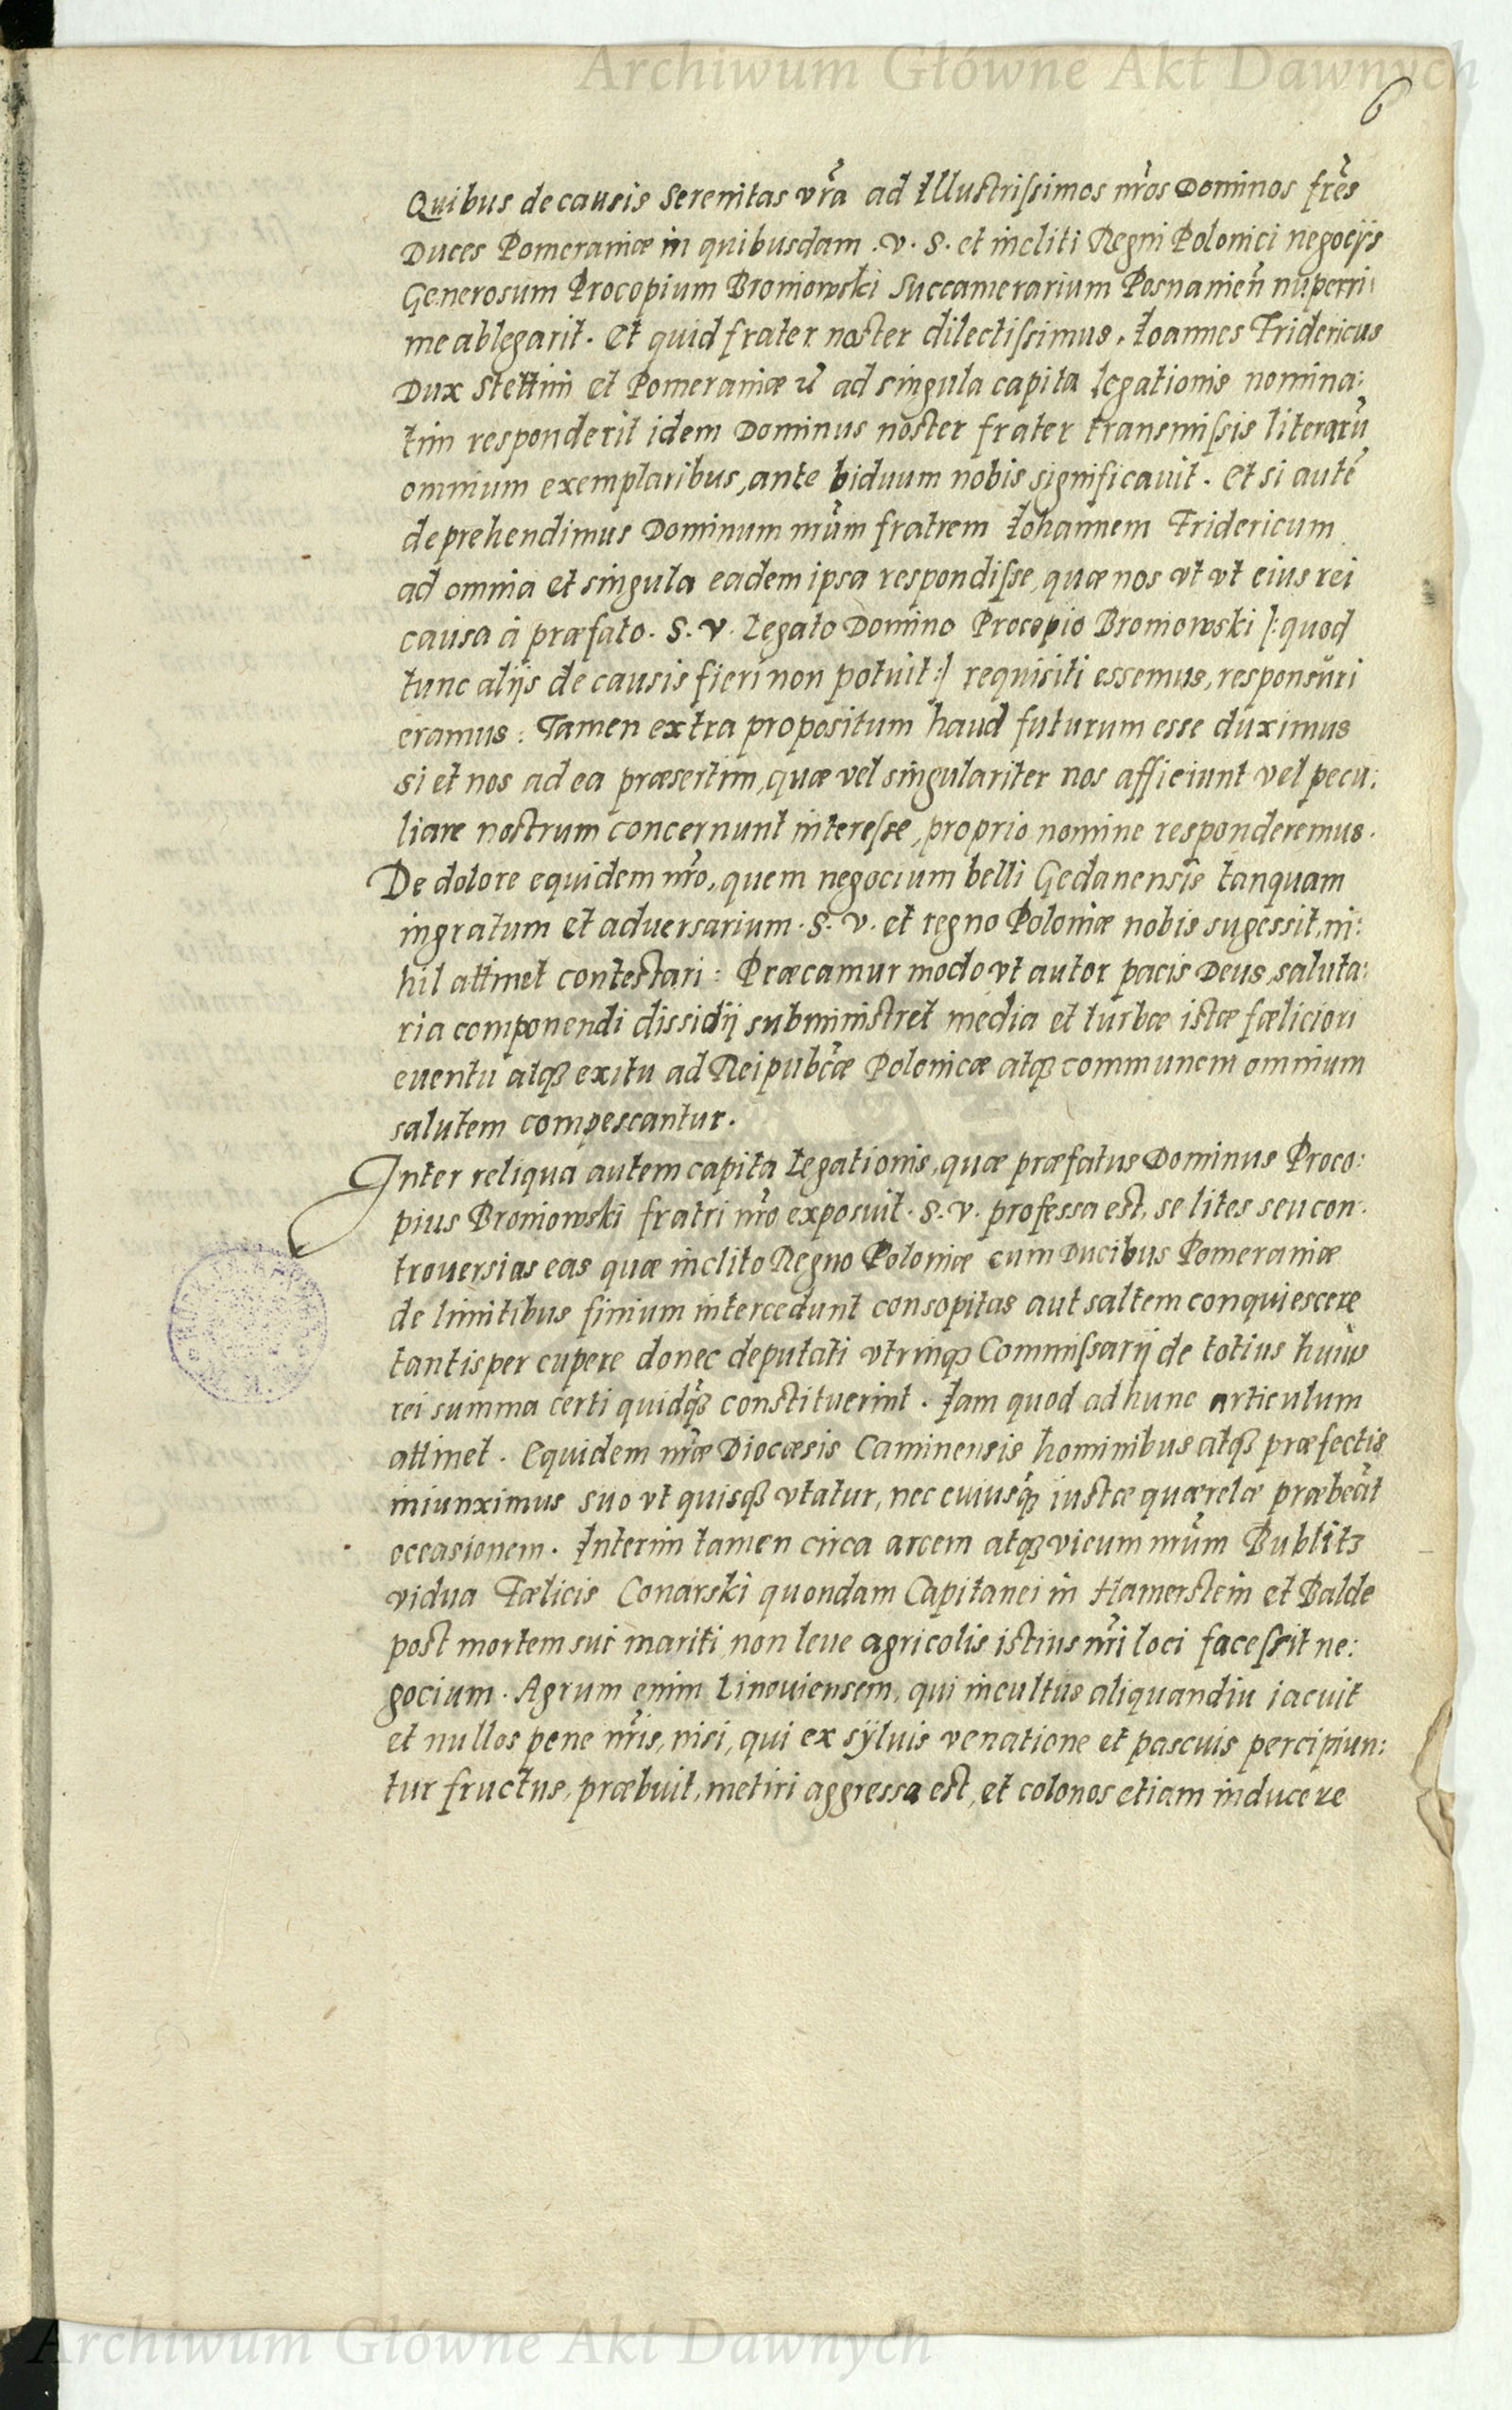 Archiwum Główne Akt Dawnych
6
Quibus de causis Serenitas vr̃a ad Illustrissimos nr̃os Dominos fr̃es
Duces Pomeraniæ in quibusdam .v. S. et incliti Regni Polonici negocijs
Generosum Procopium Broniowski Succamerarium Posnanień nuperri:
me ablegarit. Et quid frater noster dilectissimus, Ioannes Fridericus
Dux Stettin et Pomeraniæ ad singula capita legationis nomina:
tim responderit idem Dominus noster frater transmissis literarũ
omnium exemplaribus, ante biduum nobis significauit. Et si autẽ
deprehendimus Dominum nr̃um fratrem Iohannem Fridericum
ad omnia et singula eadem ipsa respondisse, quæ nos vt vt eius rei
causa à præfato. S. V. Legato Domino Procopio Broniowski /:quod
tunc alijs de causis fieri non potuit:/ requisiti essemus, responsuri
eramus: Tamen extra propositum haud futurum esse duximus
si et nos ad ea præsertim, quæ vel singulariter nos afficiunt vel pecu:
liare nostrum concernunt interesse, proprio nomine responderemus.
De dolore equidem nr̃o, quem negocium belli Gedanensis tanquam
ingratum et aduersarium. S. V. et regno Poloniæ nobis sugessit, ni:
hil attinet contestari: Præcamur modo vt autor pacis Deus, saluta:
ria componendi dissidij subministret media et turbæ istæ fæliciori
euentu atq3 exitu ad Reipubc̃æ Polonicæ atq3 communem omnium
salutem compescantur.
Inter reliqua autem capita Legationis, quæ præfatus Dominus Proco:
pius Broniowski fratri nr̃o exposuit. S. V. professa est, se lites seu con:
trouersias eas quæ inclito Regno Poloniæ cum Ducibus Pomeraniæ
de limitibus finium intercedunt consopitas aut saltem conquiescere
tantisper cupere donec deputati vtrinq3 Commissarij de totius huius
rei summa certi quidq̃3 constituerint. Iam quod ad hunc articulum
attinet. Equidem nr̃æ Diocæsis Caminensis hominibus atq3 præfectis
iniunximus suo vt quisq3 vtatur, nec cuiusq̃3 iustæ quærelæ præbeãt
occasionem. Interim tamen circa arcem atq3 vicum nr̃um Bublitz
vidua Fælicis Conarski quondam Capitanei in Hamerstein et Balde
post mortem sui mariti non leue agricolis istius nr̃i loci facessit ne:
gocium. Agrum enim Linouiensem, qui incultus aliquandiu iacuit
et nullos pene nr̃is, nisi, qui ex syluis venatione et pascuis percipiun:
tur fructus, præbuit, metiri aggressa est, et colonos etiam inducere
Archiwum Główne Akt Dawnych